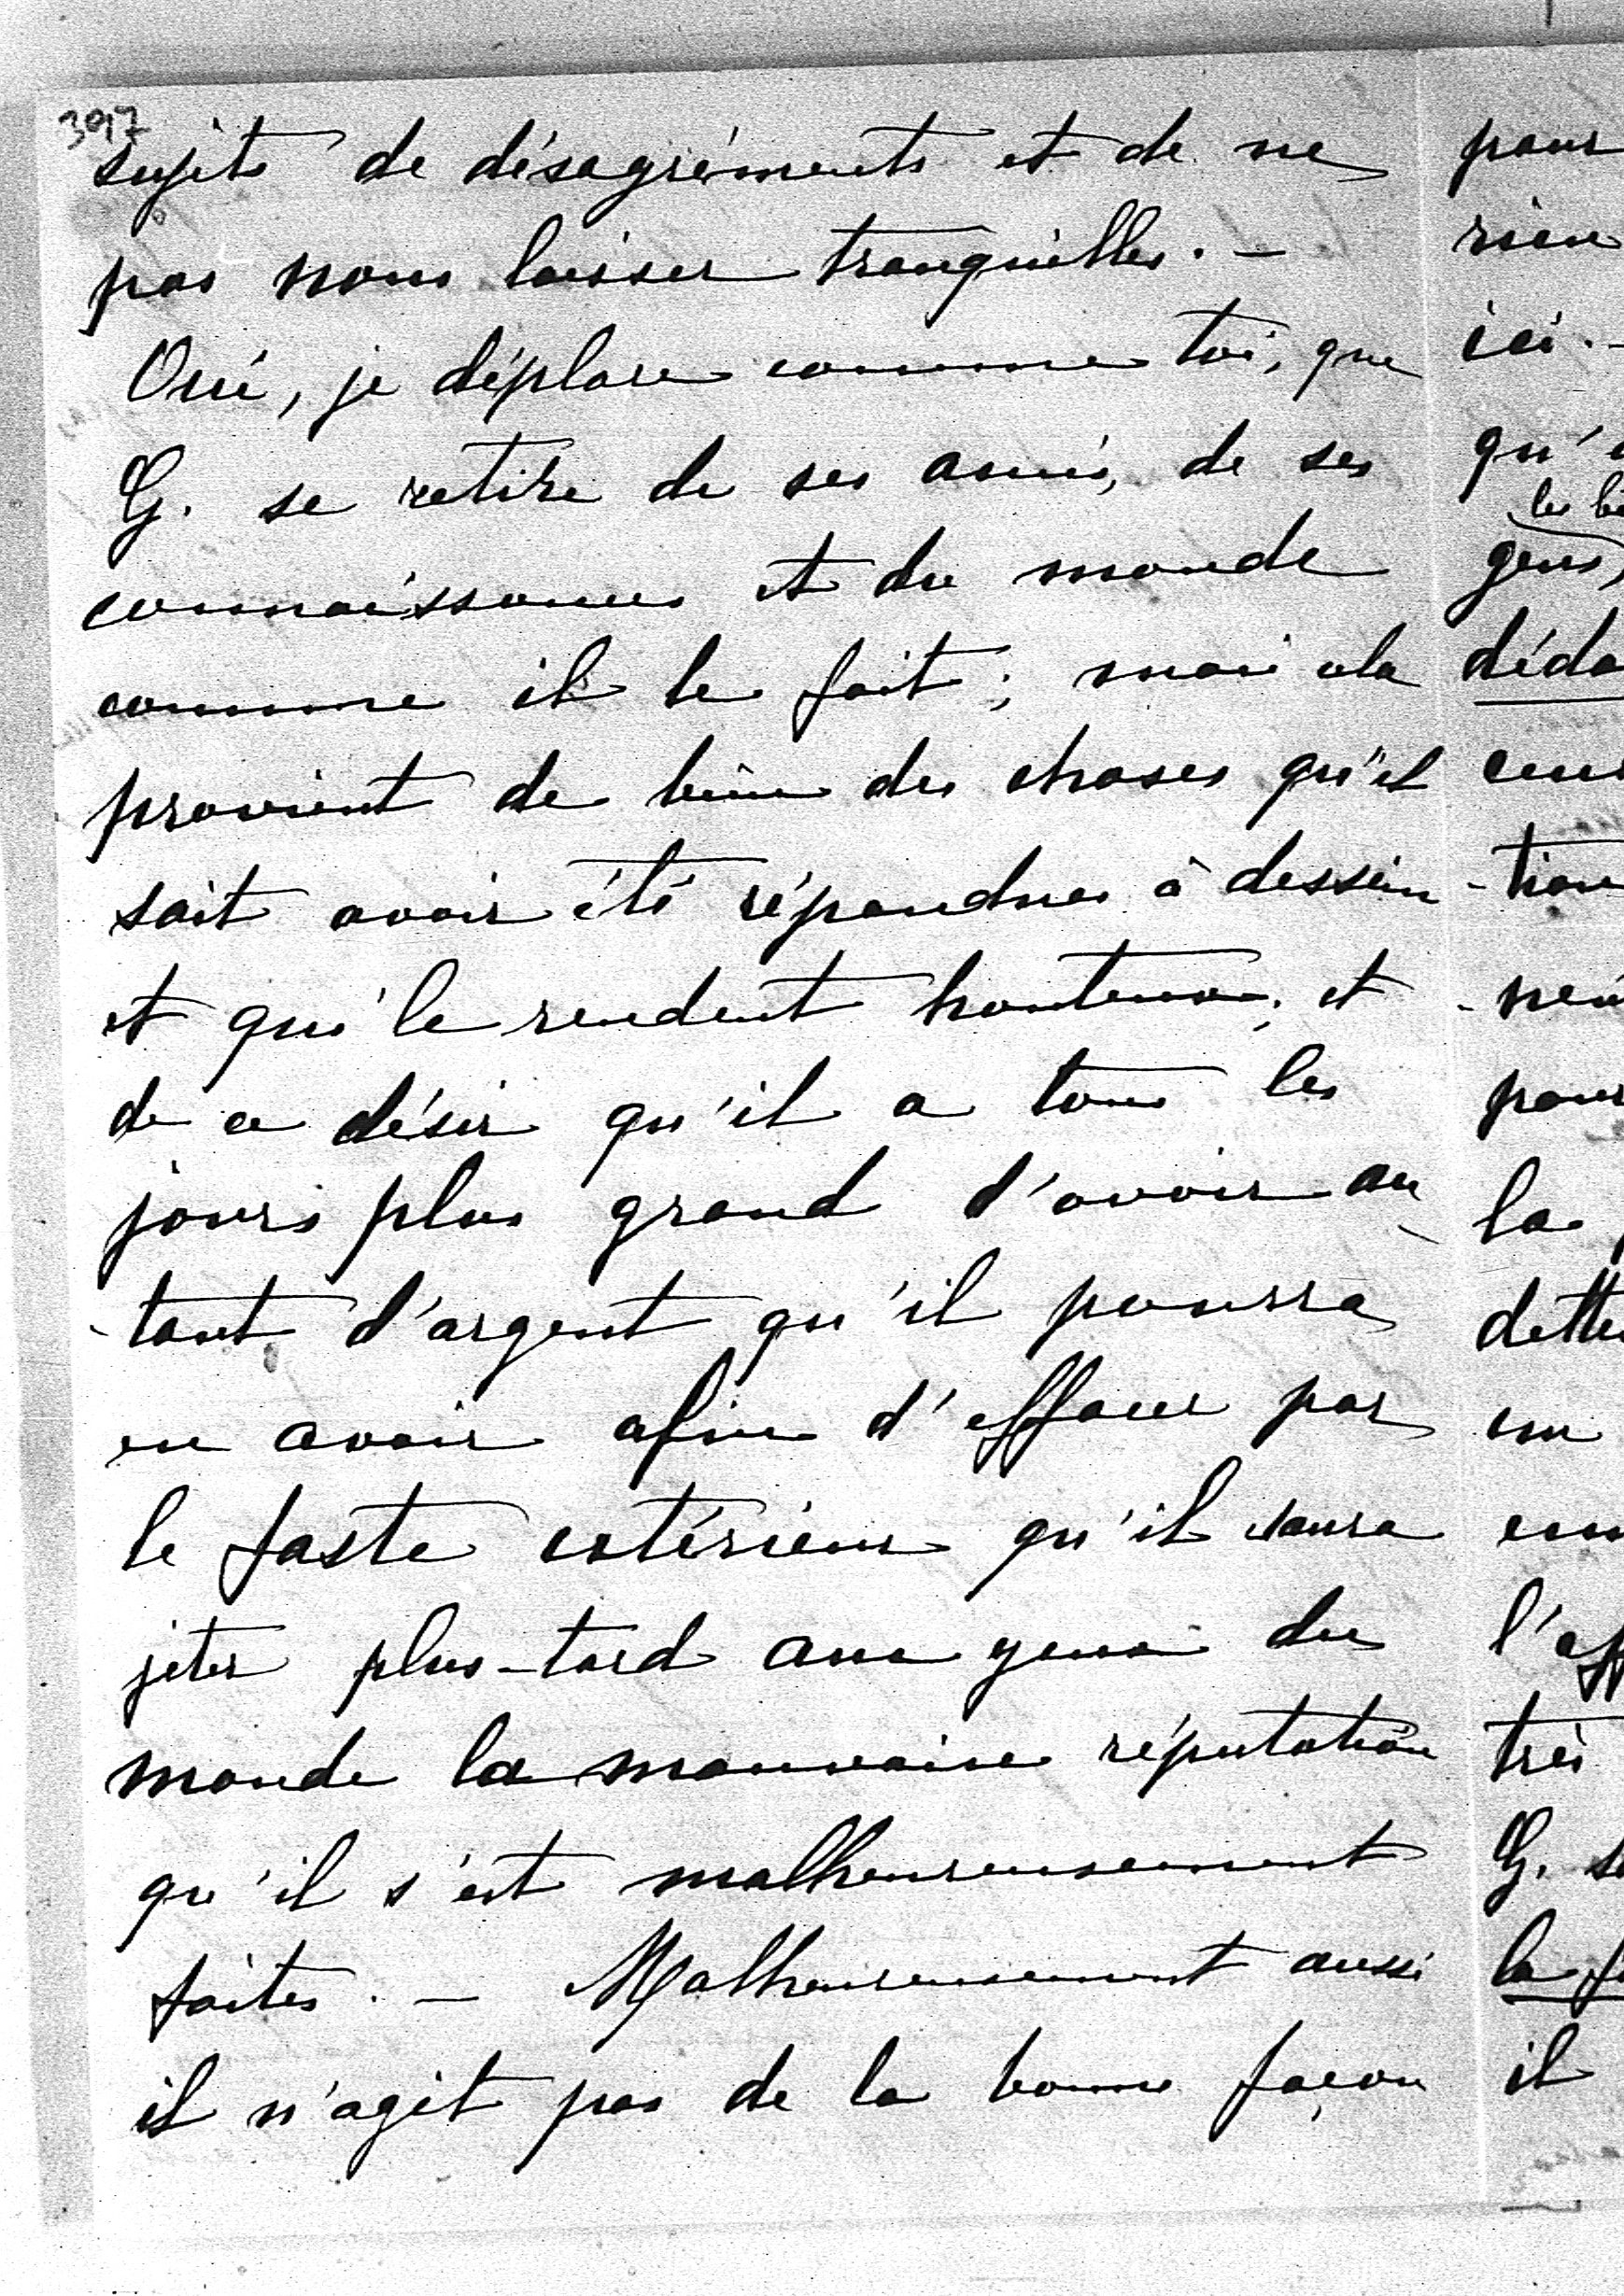 3097
sujets de désagréments et de ne
pas nous laisser tranquilles. –
Oui, je déplore comme toi, que
G. se retire de ses amis, de ses
connaissances et du monde
comme il le fait ; mais cela
provient de bien des choses qu'il
sait avoir été répandues à dessein
et qui le rendent honteux ; et
de ce désir qu'il a tous les
jours plus grand d'avoir au
-tant d'argent qu'il pourra
en avoir afin d'effacer par
le faste extérieur qu'il saura
jeter plus-tard aux yeux du
monde la mauvaise réputation
qu'il s'est malheureusement
faites. – Malheureusement aussi
il n'agit pas de la bonne façon
pour
rien
ici. –
qu'
gens,
déda
-tion
pour
la
dette
un
l'aff
très
G.
la f
il